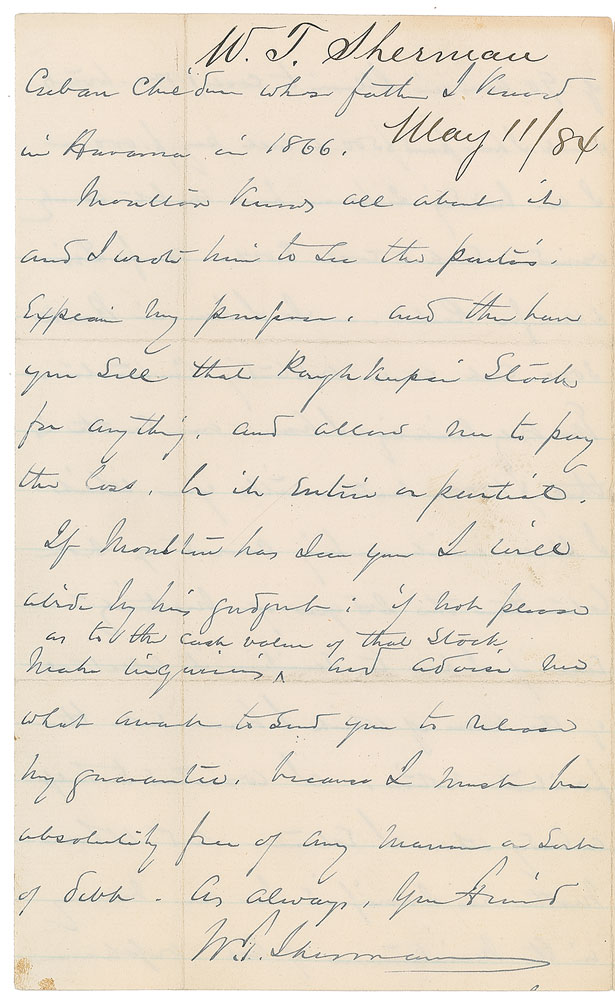 W. T. Sherman
Cuban Children whose father I Knew
May 11/84
in Havana in 1866.
Moulton Knows all about it
and I wrote him to See the parties.
Explain my purpose, and then have
you Sell that Poughkeepsie Stock
for anything, and allow me to pay
the loss, be it Entire or partial.
If Moulton has Seen you I will
abide by his judgmt: if not please
as to the cash value of that Stock
make inquiries ^ and advise me
what amount to Send you to release
my guarantee, because I must be
absolutely free of any manner or Sort
of debt. As always, Your friend
W. T. Sherman